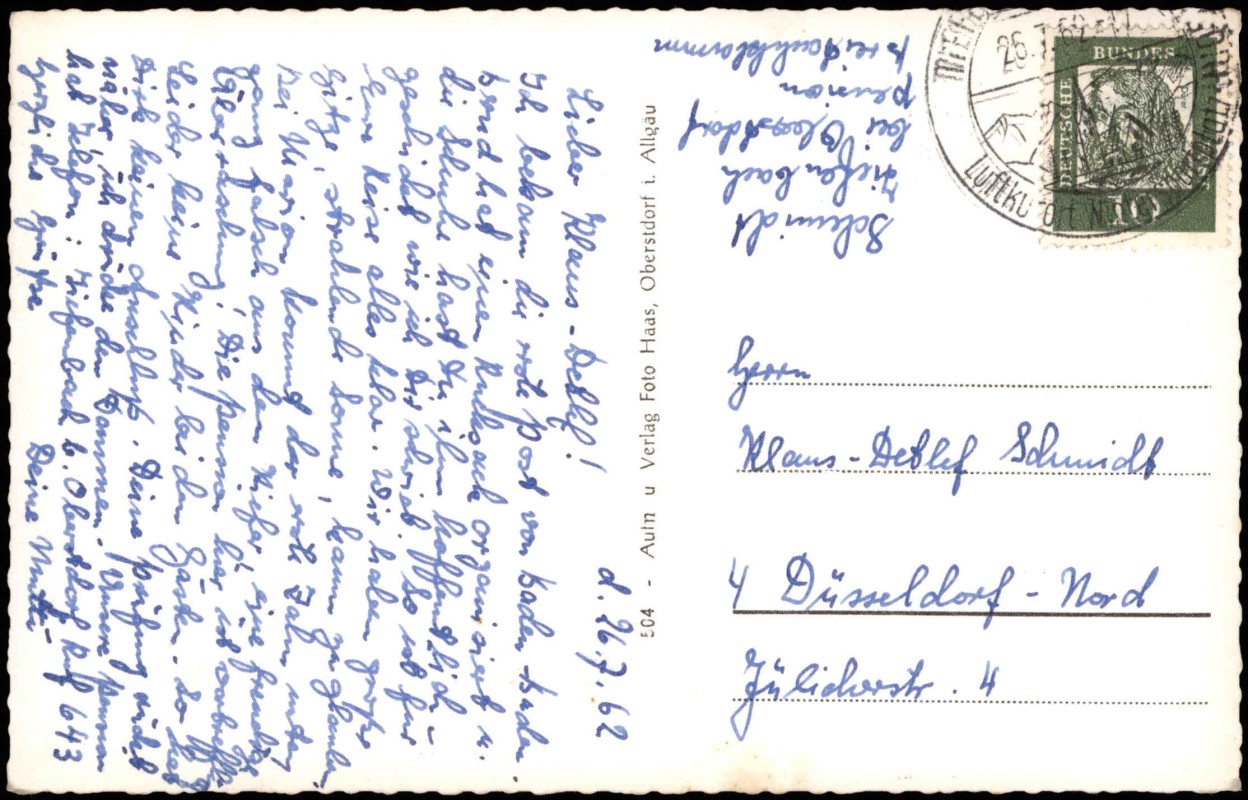 d. 26.7.62
Lieber Klaus-Detlef!
Ich bekam die erste Post von Baden-Baden.
Brod hat einen Rucksack organisiert u.
die Schuhe hast Du ihm hoffentlich
geschickt wie ich Dir schrieb. So ist für
Eure Reise alles klar. Wir haben große
Hitze, strahlende Sonne, kaum zu glauben
Bei Marion kommt der erste Zahn unten
ganz falsch aus dem Kiefer, eine freudige
Überraschung! Die Pension hier ist
leider keine Kinder bei den Gästen. So
Dirk keinen Anschluß. Deine Prüfung rückt
näher ich drücke den Daumen. Unsere Pension
hat Telefon: Tiefenbach b. Oberstdorf Ruf 643
Herzliche Grüße
Deine Mutti
504 - Aufn u Verlag Foto Haas, Oberstdorf i. Allgäu
Schmidt
Tiefenbach
bei Oberstdorf
Pension
Breitachklamm
26.7.62
Luftkurort
DEUTSCHE
BUNDES
10
Herrn
Klaus-Detlef Schmidt
4 Düsseldorf-Nord
Jülicherstr. 4